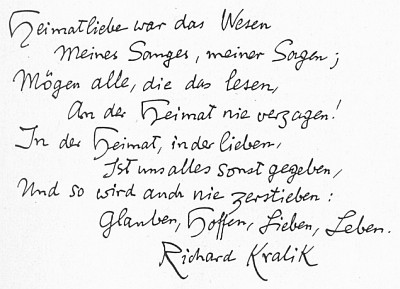 Heimatliebe war das Wesen
Meines Sanges, meiner Sagen;
Mögen alle, die das lesen,
An der Heimat nie verzagen!
In der Heimat, in der lieben,
Ist uns alles sonst gegeben,
Und so wird auch nie zerstieben:
Glauben, Hoffen, Lieben, Leben.
Richard Kralik